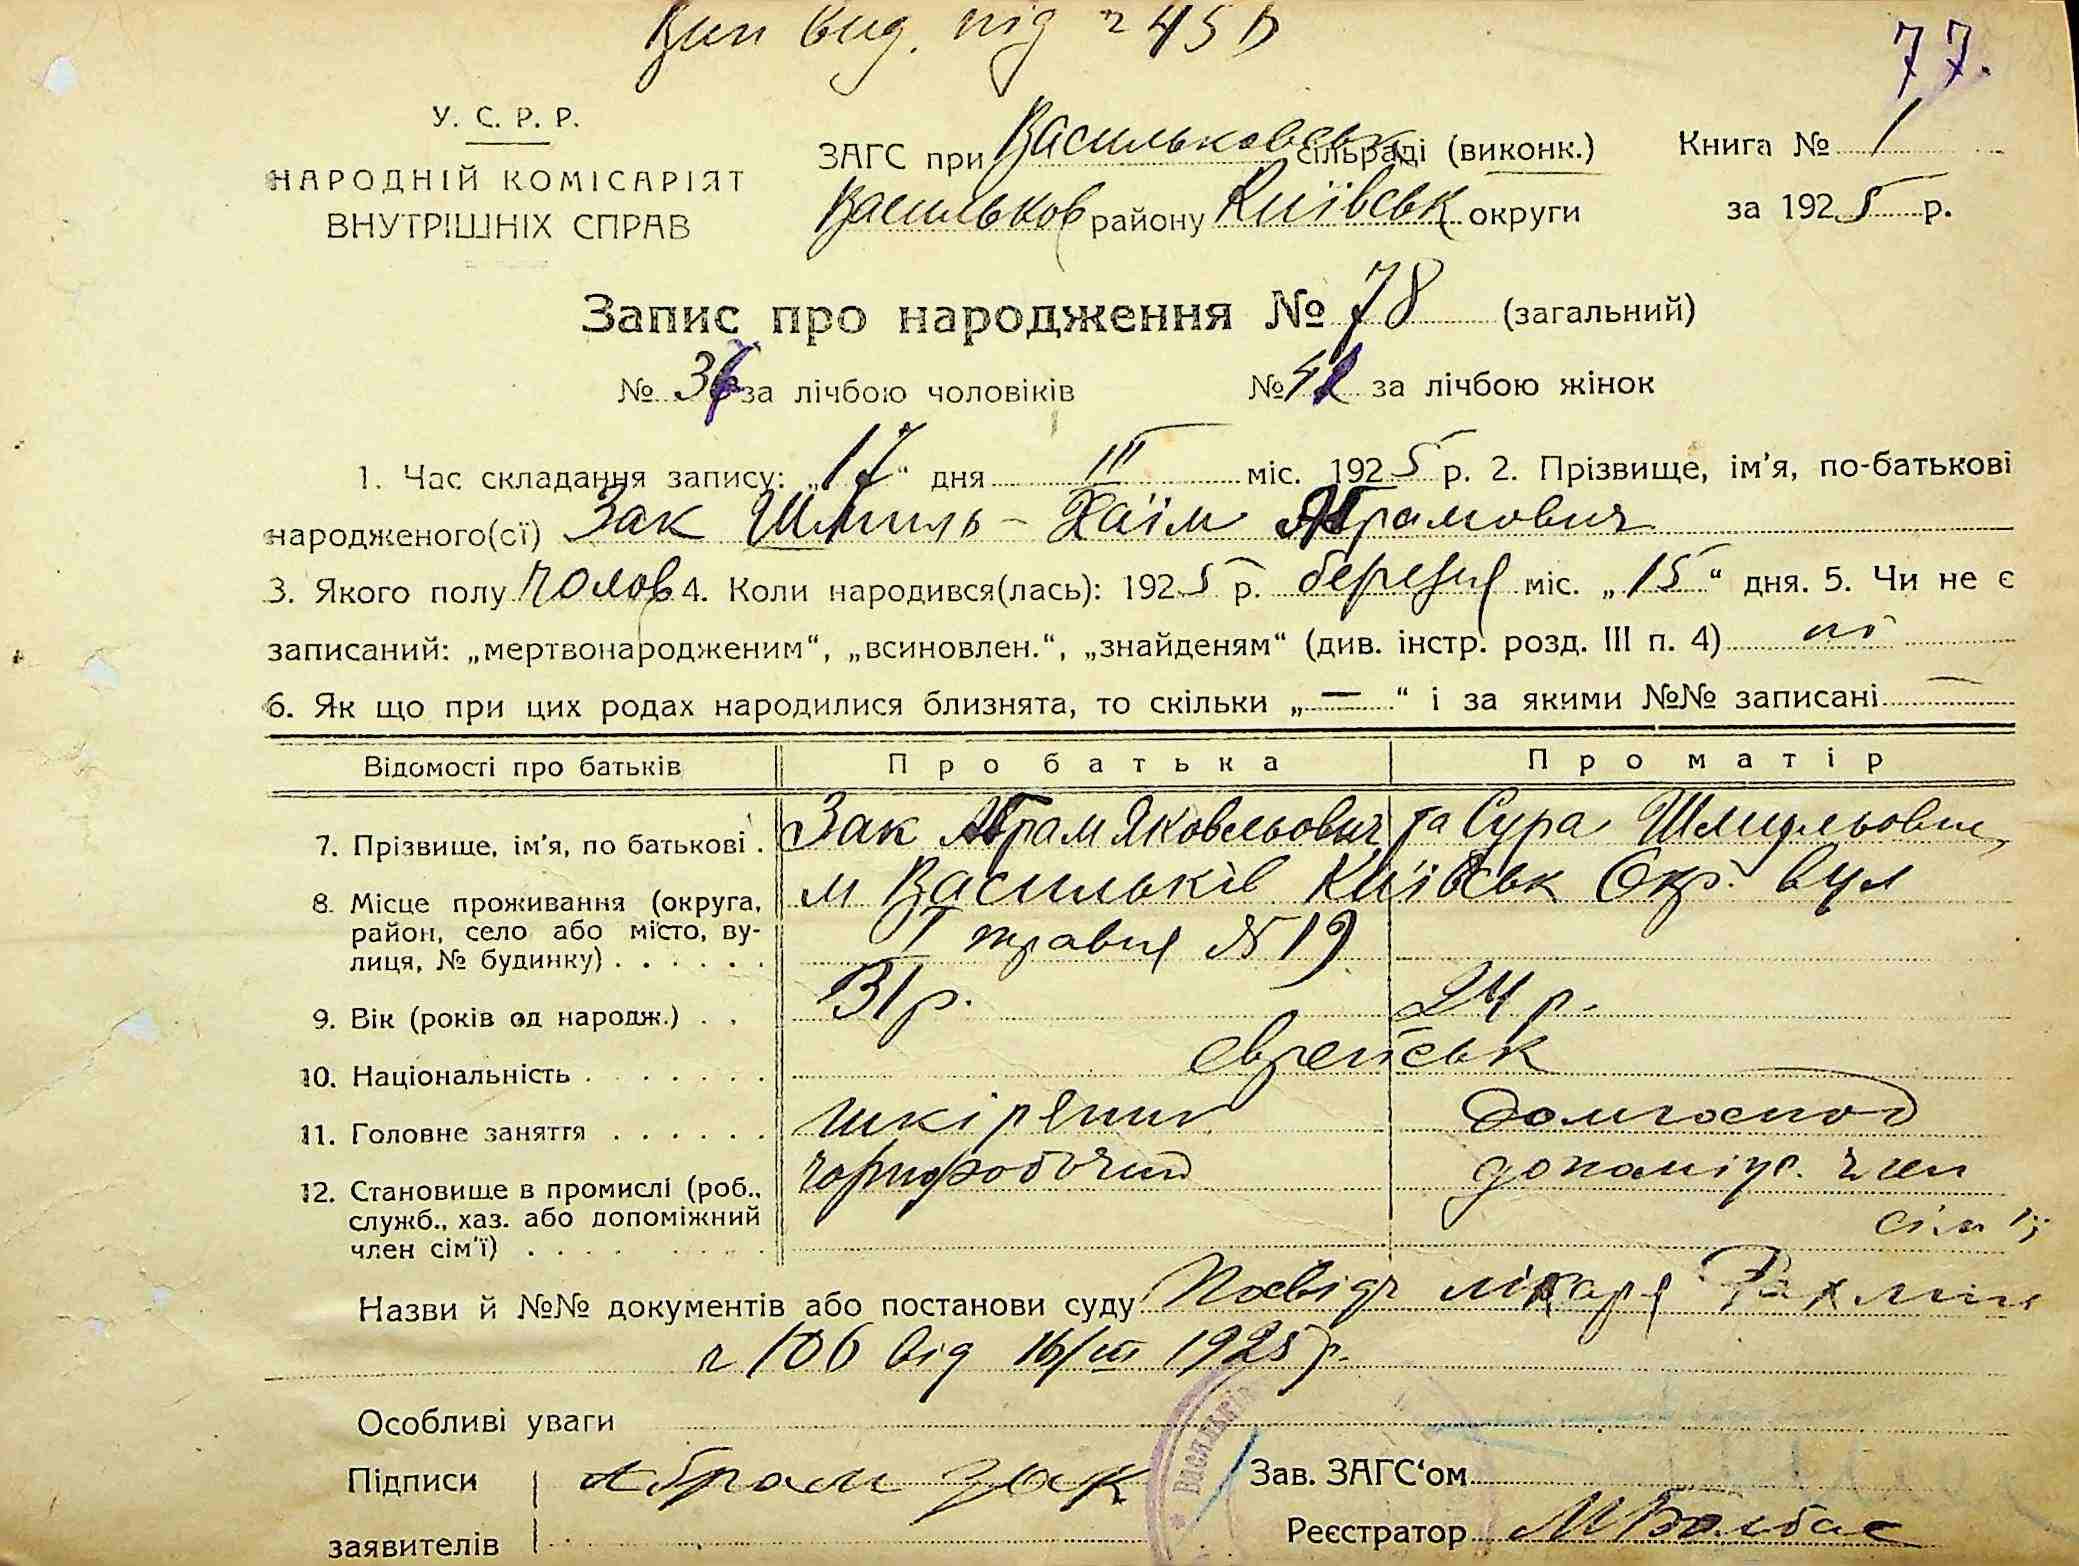 Вип вид. під ч 45
77.
У. С. Р. Р.
НАРОДНІЙ КОМІСАРІЯТ
ВНУТРІШНІХ СПРАВ
ЗАГС при Васильковськ сільраді (виконк.)
Васильков району Київськ округи
Книга № 1
за 1925 р.
Запис про народження № 78 (загальний)
№ 36 за лічбою чоловіків
№ 42 за лічбою жінок
1. Час складання запису: „17“ дня III міс. 1925 р. 2. Прізвище, ім'я, по-батькові
народженого(сї) Зак Шмиль-Хаїм Абрамович
3. Якого полу чолов 4. Коли народився(лась): 1925 р. березня міс. „15“ дня. 5. Чи не є
записаний: „мертвонародженим“, „всиновлен.“, „знайденям“ (див. інстр. розд. III п. 4) ні
6. Як що при цих родах народилися близнята, то скільки „—“ і за якими №№ записані —
Відомості про батьків
Про батька
Про матір
7. Прізвище, ім'я, по батькові .
Зак Абрам Яковльович та Сура Шмильовна
8. Місце проживання (округа,
район, село або місто, ву-
лиця, № будинку) . . . . . .
м Васильків Київськ Окр. вул
I травня № 19
9. Вік (років од народж.) . .
31 р.
24 р.
10. Національність . . . . . . .
єврейськ
11. Головне заняття . . . . . .
шкіряник
домгоспод
12. Становище в промислі (роб.,
служб., хаз. або допоміжний
член сім'ї) . . . . . . . . .
чорноробочий
допоміж. член
сім'ї
Назви й №№ документів або постанови суду Посвідч лікаря
ч 106 від 16/III 1925 р.
Особливі уваги
Підписи
заявителів
Абрам Зак
ВАСИЛЬКІВ
Зав. ЗАГС'ом
Реєстратор